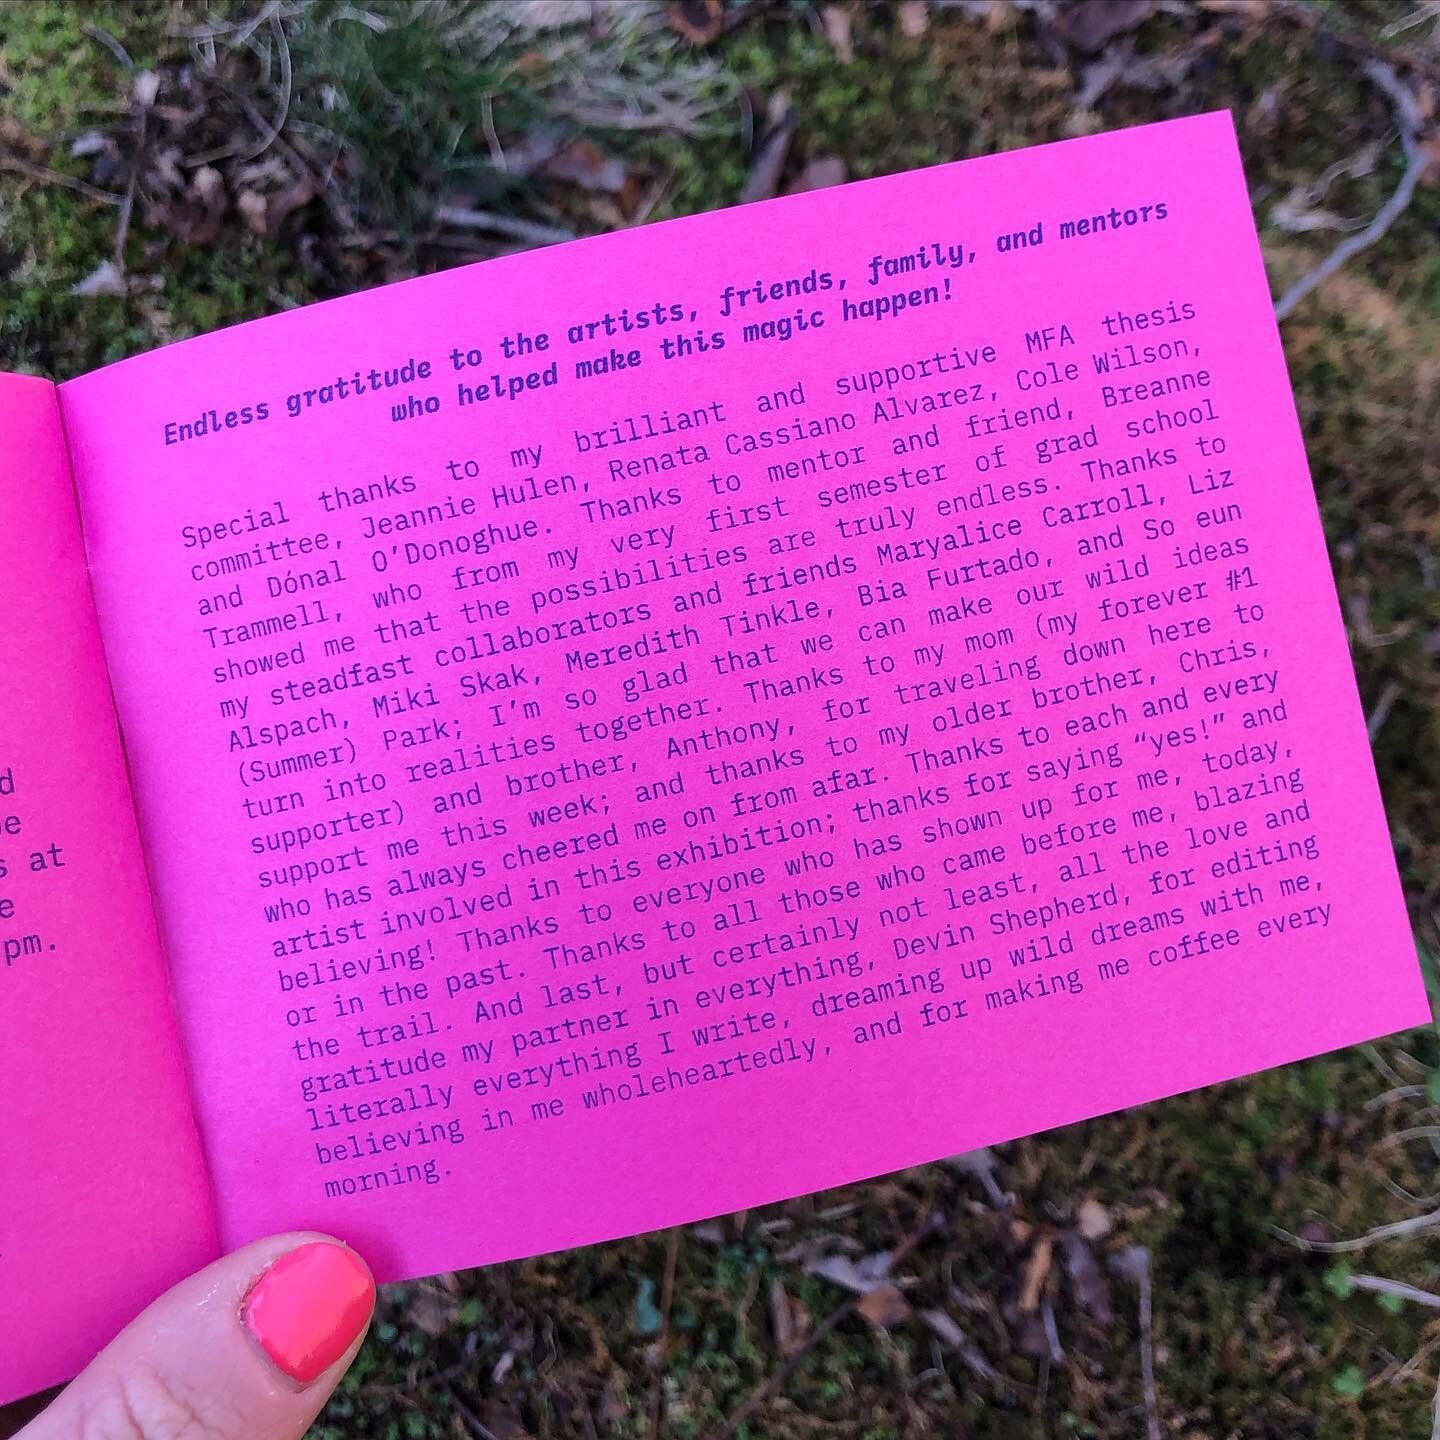 d
s at
e
pm.
Endless gratitude to the artists, friends, family, and mentors
who helped make this magic happen!
Special thanks to my brilliant and supportive MFA thesis
committee, Jeannie Hulen, Renata Cassiano Alvarez, Cole Wilson,
and Dónal O'Donoghue. Thanks to mentor and friend, Breanne
Trammell, who from my very first semester of grad school
showed me that the possibilities are truly endless. Thanks to
my steadfast collaborators and friends Maryalice Carroll, Liz
Alspach, Miki Skak, Meredith Tinkle, Bia Furtado, and So eun
(Summer) Park; I'm so glad that we can make our wild ideas
turn into realities together. Thanks to my mom (my forever #1
supporter) and brother, Anthony, for traveling down here to
support me this week; and thanks to my older brother, Chris,
who has always cheered me on from afar. Thanks to each and every
artist involved in this exhibition; thanks for saying “yes!” and
believing! Thanks to everyone who has shown up for me, today,
or in the past. Thanks to all those who came before me, blazing
the trail. And last, but certainly not least, all the love and
gratitude my partner in everything, Devin Shepherd, for editing
literally everything I write, dreaming up wild dreams with me,
believing in me wholeheartedly, and for making me coffee every
morning.